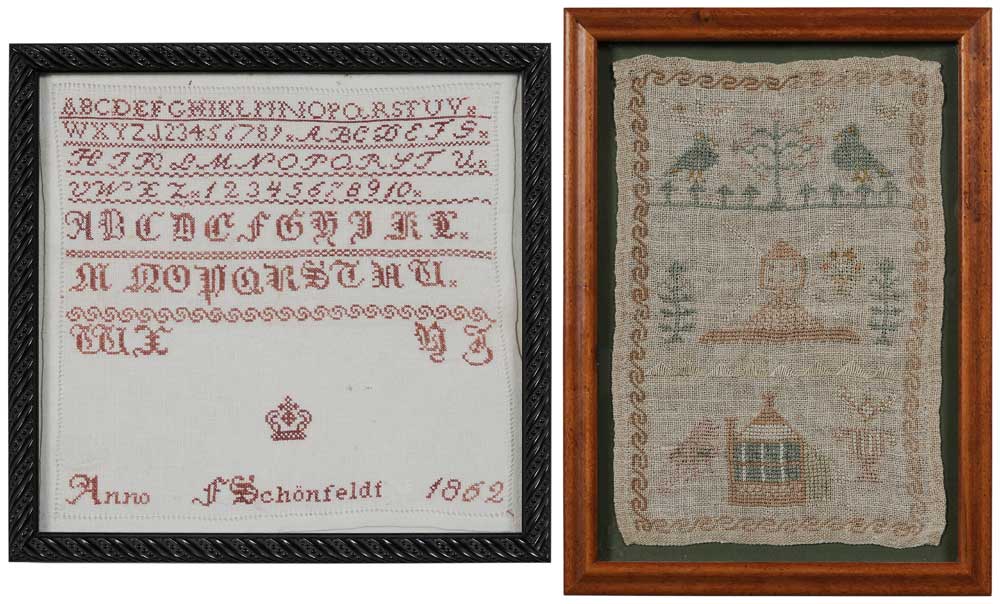 ABCDEFGHIKLMNOPQRSTUV×
WXYZ123456789×ABCDEFG×
HIKLMNOPQRSTU×
VWXZ×12345678910×
ABCDEFGHIKL×
MNOPQRSTUU×
WX YZ
Anno FSchönfeldt 1862